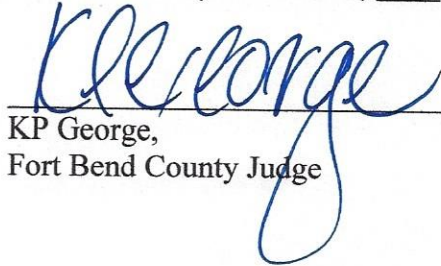 KP George
KP George,
Fort Bend County Judge